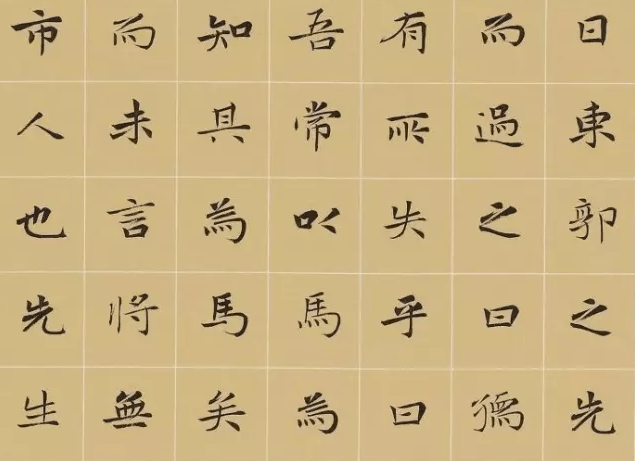 日東郭之先
而過之曰
有所失乎曰
吾常以馬為
知其為馬矣
而未言將無
市人也先生